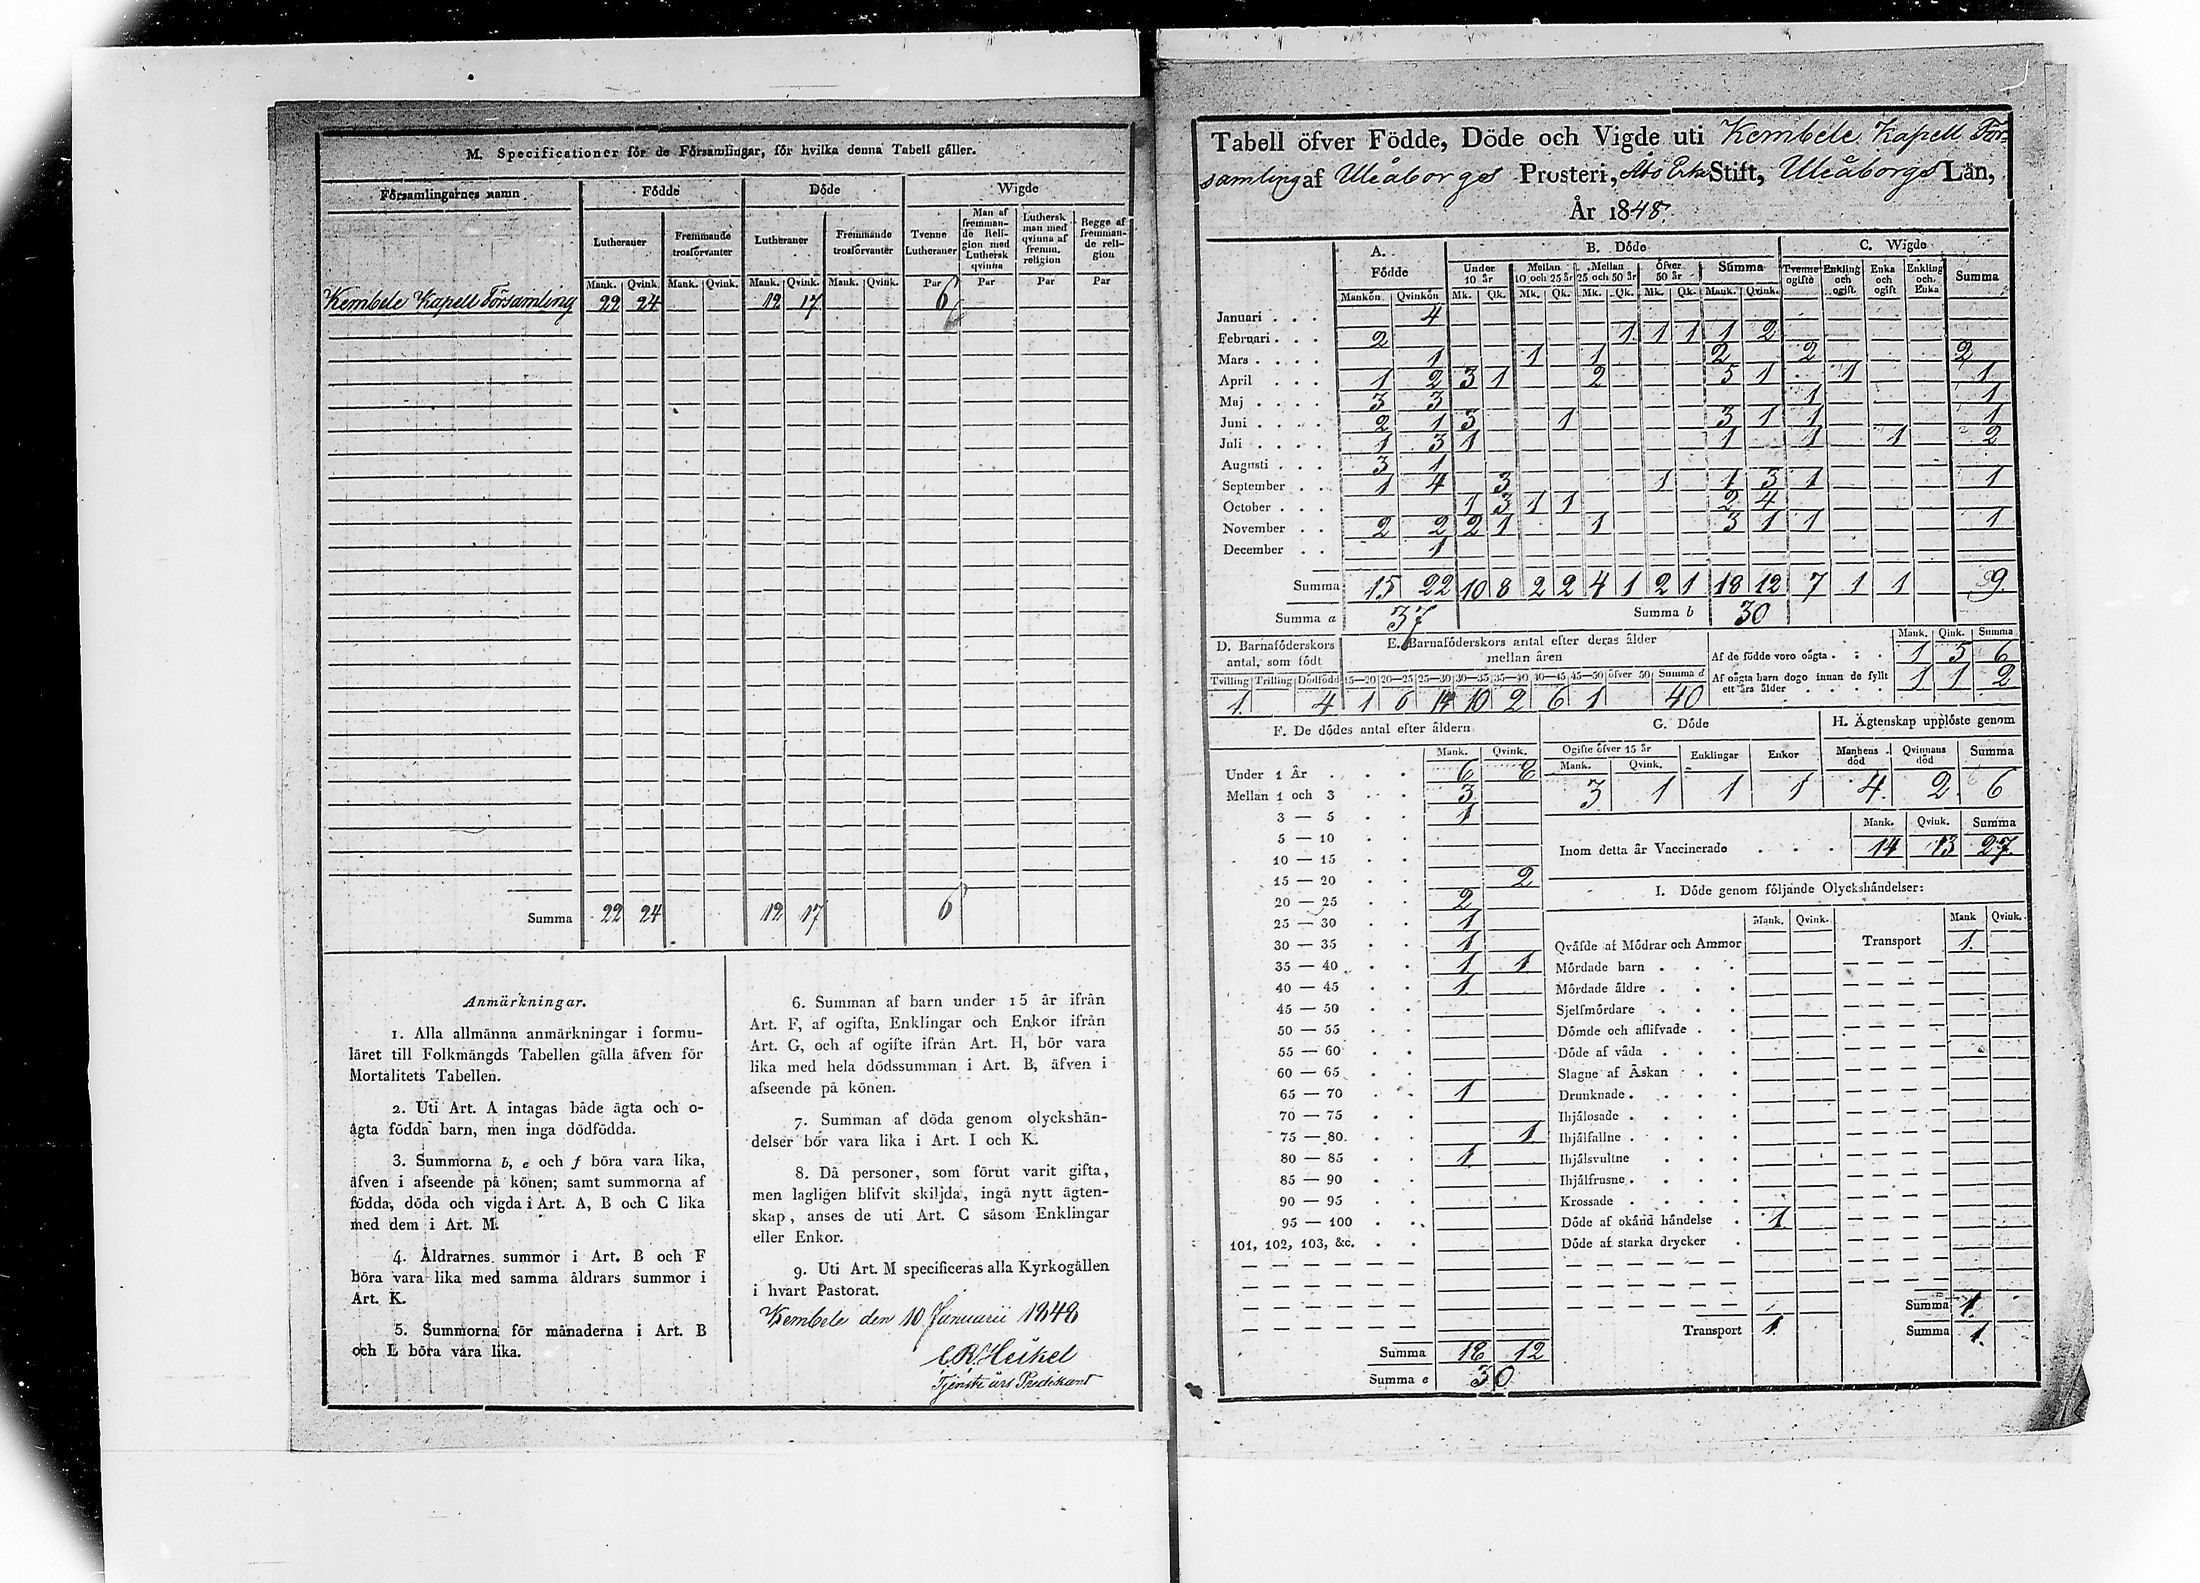 M. Specificationer för de Församlingar, för hvilka denna Tabell gäller.
Församlingarnes namn. Födde Döde Wigde
Lutheraner Fremmande trosförvanter Lutheraner Fremmande trosförvanter Tvenne Lutheraner Man af fremmande Religion med Luthersk qvinna Luthersk man med qvinna af fremm. religion Begge af fremmande religion
Mank. Qvink. Mank. Qvink. Mank. Qvink. Mank. Qvink. Par Par Par Par
Kembele Kapell Församling 22 24 12 17 6
Summa 22 24 12 17 6
Anmärkningar.
1. Alla allmänna anmärkningar i formu-
läret till Folkmängds Tabellen gälla äfven för
Mortalitets Tabellen.
2. Uti Art. A intagas både ägta och o-
ägta födda barn, men inga dödfödda.
3. Summorna b, e och f böra vara lika,
äfven i afseende på könen; samt summorna af
födda, döda och vigda i Art. A, B och C lika
med dem i Art. M.
4. Åldrarnes summor i Art. B och F
böra vara lika med samma åldrars summor i
Art. K.
5. Summorna för månaderna i Art. B
och L böra vara lika.
6. Summan af barn under 15 år ifrån
Art. F, af ogifta, Enklingar och Enkor ifrån
Art. G, och af ogifte ifrån Art. H, bör vara
lika med hela dödssumman i Art. B, äfven i
afseende på könen.
7. Summan af döda genom olyckshän-
delser bör vara lika i Art. I och K.
8. Då personer, som förut varit gifta,
men lagligen blifvit skiljda, ingå nytt ägten-
skap, anses de uti Art. C såsom Enklingar
eller Enkor.
9. Uti Art. M specificeras alla Kyrkogällen
i hvart Pastorat.
Kembele den 10 Januarii 1848
C R Heikel
Tjenste års Predikant
Tabell öfver Födde, Döde och Vigde uti Kembele Kapell För-
samling af Uleåborgs Prosteri, Åbo Erke Stift, Uleåborgs Län,
År 1848.
A. Födde B. Döde C. Wigde
Under 10 år Mellan 10 och 25 år Mellan 25 och 50 år Öfver 50 år Summa Tvenne ogifte Enkling och ogift. Enka och ogift Enkling och Enka Summa
Mankön Qvinkön Mk. Qk. Mk. Qk. Mk. Qk. Mk. Qk. Mank. Qvink.
Januari . . . 4
Februari . . . 2 1 1 1 1 2
Mars . . . . 1 1 1 2 2 2
April . . . 1 2 3 1 2 5 1 1 1
Maj . . . . 3 3 1 1
Juni . . . . 2 1 3 1 3 1 1 1
Juli . . . . 1 3 1 1 1 1 2
Augusti . . . 3 1
September . . 1 4 3 1 1 3 1 1
October . . . 1 3 1 1 2 4
November . . 2 2 2 1 1 3 1 1 1
December . . 1
Summa 15 22 10 8 2 2 4 1 2 1 18 12 7 1 1 9.
Summa a 37 Summa b 30
D. Barnaföderskors antal, som födt
Tvilling Trilling Dödfödd
1. 4
E. Barnaföderskors antal efter deras ålder mellan åren
15—20 20—25 25—30 30—35 35—40 40—45 45—50 öfver 50 Summa d
1 6 14 10 2 6 1 40
Mank. Qink. Summa
Af de födde voro oägta . . . 1 5 6
Af oägta barn dogo innan de fyllt ett års ålder . . . . 1 1 2
F. De dödes antal efter åldern
Mank. Qvink.
Under 1 År . . . 6 8
Mellan 1 och 3 . . 3
3 — 5 . . 1
5 — 10 . .
10 — 15 . .
15 — 20 . . 2
20 — 25 . . 2
25 — 30 . . 1
30 — 35 . . 1
35 — 40 . . 1 1
40 — 45 . . 1
45 — 50 . .
50 — 55 . .
55 — 60 . .
60 — 65 . .
65 — 70 . . 1
70 — 75 . .
75 — 80 . . 1
80 — 85 . . 1
85 — 90 . .
90 — 95 . .
95 — 100 . .
101, 102, 103, &c. . .
Summa 18 12
Summa e 30
G. Döde
Ogifte öfver 15 år Enklingar Enkor
Mank. Qvink.
3 1 1 1
H. Ägtenskap upplöste genom
Mannens död Qvinnans död Summa
4. 2. 6
Mank. Qvink. Summa
Inom detta år Vaccinerade . . . 14 13 27
I. Döde genom följande Olyckshändelser:
Mank. Qvink. Mank Qvink.
Qväfde af Mödrar och Ammor Transport 1.
Mördade barn . . .
Mördade äldre . . .
Sjelfmördare . .
Dömde och aflifvade . .
Döde af våda . . .
Slagne af Åskan . .
Drunknade . . . .
Ihjälosade . . . .
Ihjälfallne . . . .
Ihjälsvultne . . .
Ihjälfrusne . . . .
Krossade . . . .
Döde af okänd händelse . 1
Döde af starka drycker .
Summa 1.
Transport 1. Summa 1.